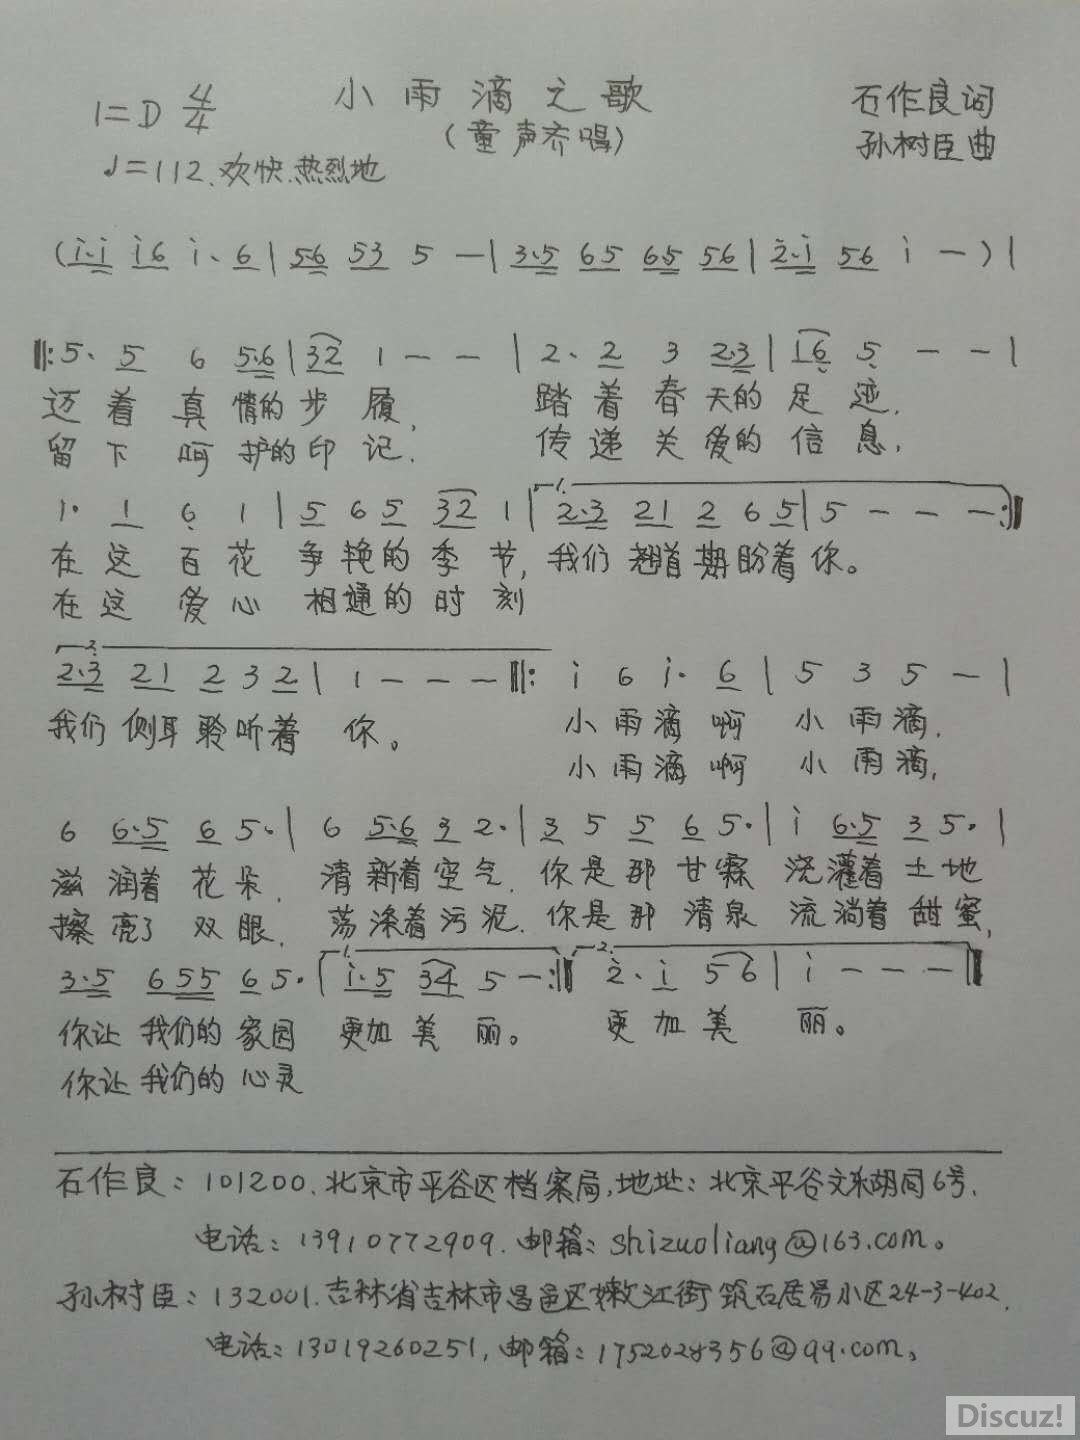 1=D 4/4 小雨滴之歌 石作良词
(童声齐唱) 孙树臣曲
♩=112.欢快.热烈地
(i·i i6 i· 6 | 5·6 53 5 — | 3·5 65 6·5 56 | 2·i 56 i —) |
‖: 5· 5 6 5·6 | 32 1 — — | 2· 2 3 2·3 | 16 5 — — |
迈着真情的步履, 踏着春天的足迹,
留下呵护的印记. 传递关爱的信息,
1· 1 6 1 | 5 6 5 32 1 | 1. 2·3 21 2 6 5 | 5 — — — :‖
在这百花争艳的季节, 我们翘首期盼着你。
在这爱心相通的时刻
2. 2·3 21 2 3 2 | 1 — — — ‖: i 6 i· 6 | 5 3 5 — |
我们侧耳聆听着你。 小雨滴啊小雨滴,
小雨滴啊小雨滴,
6 6·5 6 5· | 6 5·6 3 2· | 3 5 5 6 5· | i 6·5 3 5· |
滋润着花朵, 清新着空气. 你是那甘霖浇灌着土地
擦亮了双眼, 荡涤着污泥. 你是那清泉流淌着甜蜜,
3·5 655 6 5· | 1. i·5 34 5 — :‖ 2. 2· i 5 6 | i — — — ‖
你让我们的家园更加美丽。 更加美丽。
你让我们的心灵
石作良: 101200.北京市平谷区档案局,地址:北京平谷文东胡同6号.
电话: 13910772909. 邮箱: shizuoliang@163.com。
孙树臣: 132001.吉林省吉林市昌邑区嫩江街筑石居易小区24-3-402.
电话: 13019260251, 邮箱: 1752028356@qq.com。
Discuz!